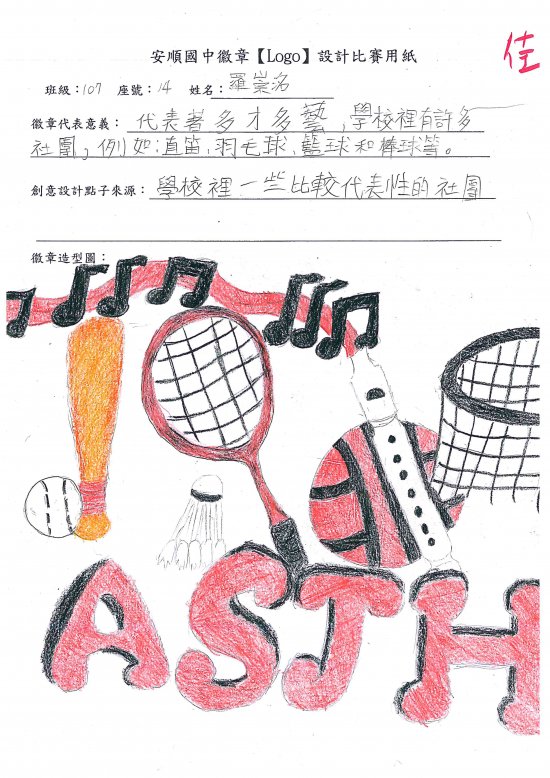 安順國中徽章【Logo】設計比賽用紙
佳
班級：107 座號：14 姓名：羅崇洺
徽章代表意義： 代表著多才多藝，學校裡有許多
社團，例如：直笛、羽毛球、籃球和棒球等。
創意設計點子來源： 學校裡一些比較代表性的社團
徽章造型圖：
ASJH